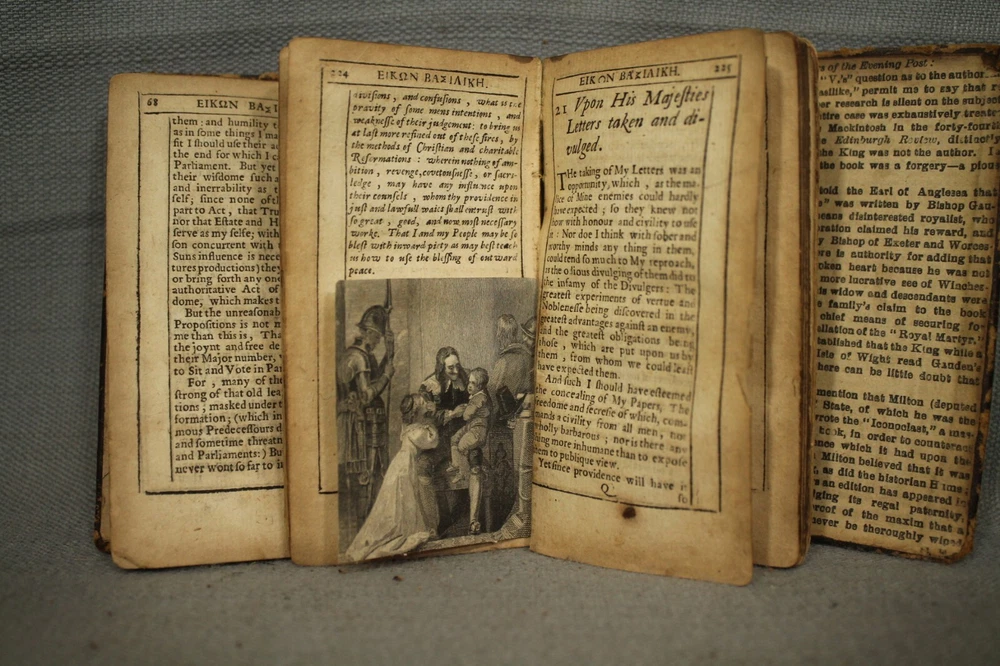 68
EIKΩN ΒΑΣΙ
them: and humility
as in some things I ma
fit I should use their
the end for which I c
Parliament. But yet
their wisdome such a
and inerrability as t
self; since none of
part to Act, that Tru
nor that Estate and H
serve as my selfe; with
son concurrent with
Suns influence is nece
tures productions) they
or bring forth any one
authoritative Act of
dome, which makes t
But the unreasonab
Propositions is not m
me than this is, Tha
the joynt and free de
their Major number,
to Sit and Vote in Par
For, many of the
strong of that old lea
tions, masked under t
formation; (which in
mous Predecessours d
and sometime threatn
and Parliaments:) But
never wont so far to i
224
ΕΙΚΩΝ ΒΑΣΙΛΙΚΗ.
divisions, and confusions, what is the
pravity of some mens intentions, and
weaknesse of their judgement: to bring us
at last more refined out of these fires, by
the methods of Christian and charitable
Reformations: wherein nothing of am-
bition, revenge, covetousnesse, or sacri-
ledge, may have any influence upon
their counsels, whom thy providence in
just and lawfull waies shall entrust with
so great, good, and now most necessary
worke. That I and my People may be so
blest with inward piety as may best teach
us how to use the blessing of outward
peace.
ΕΙΚΩΝ ΒΑΣΙΛΙΚΗ.
225
21 Vpon His Majesties
Letters taken and di-
vulged.
THe taking of My Letters was an
opportunity, which, as the ma-
lice of Mine enemies could hardly
have expected; so they knew not
how with honour and civility to use
it: Nor doe I think with sober and
worthy minds any thing in them,
could tend so much to My reproach,
as the odious divulging of them did to
the infamy of the Divulgers: The
greatest experiments of vertue and
Noblenesse being discovered in the
greatest advantages against an enemy,
and the greatest obligations being
those, which are put upon us by
them, from whom we could least
have expected them.
And such I should have esteemed
the concealing of My Papers, The
freedome and secresie of which, com-
mands a civility from all men, not
wholly barbarous; nor is there any
thing more inhumane than to expose
them to publique view.
Yet since providence will have it
Q
so
of the Evening Post:
"V.'s" question as to the author
silike," permit me to say that
er research is silent on the subject
tire case was exhaustively treate
Mackintosh in the forty-fourth
Edinburgh Review, distinctly
he King was not the author.
the book was a forgery—a pious
told the Earl of Anglesea that
was written by Bishop Gau
disinterested royalist, who
ration claimed his reward, and
y Bishop of Exeter and Worces
e is authority for adding that
oken heart because he was not
more lucrative see of Winches
is widow and descendants were
family's claim to the book
chief means of securing for
ellation of the "Royal Martyr."
tablished that the King while a
Isle of Wight read Gauden's
here can be little doubt that
mention that Milton (deputed
State, of which he was the
rote the "Iconoclast," a
took, in order to counteract
nce which it had upon the
Milton believed that it was
as did the historian Hume;
an edition has appeared in
ging its regal paternity,
roof of the maxim that a
never be thoroughly